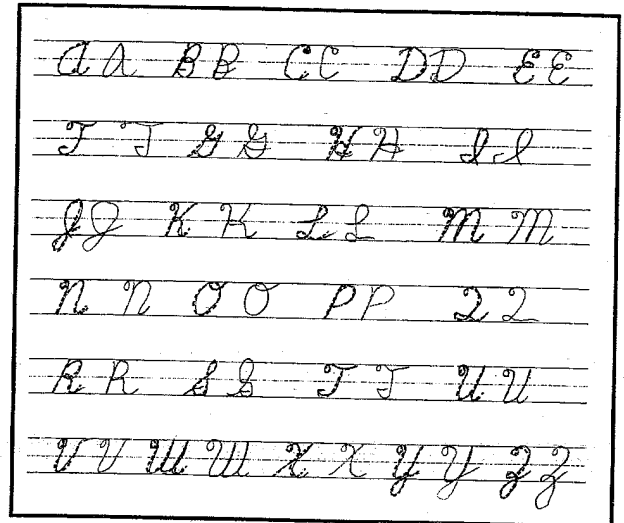 A A B B C C D D E E
F F G G H H I I
J J K K L L M M
N N O O P P Q Q
R R S S T T U U
V V W W X X Y Y Z Z